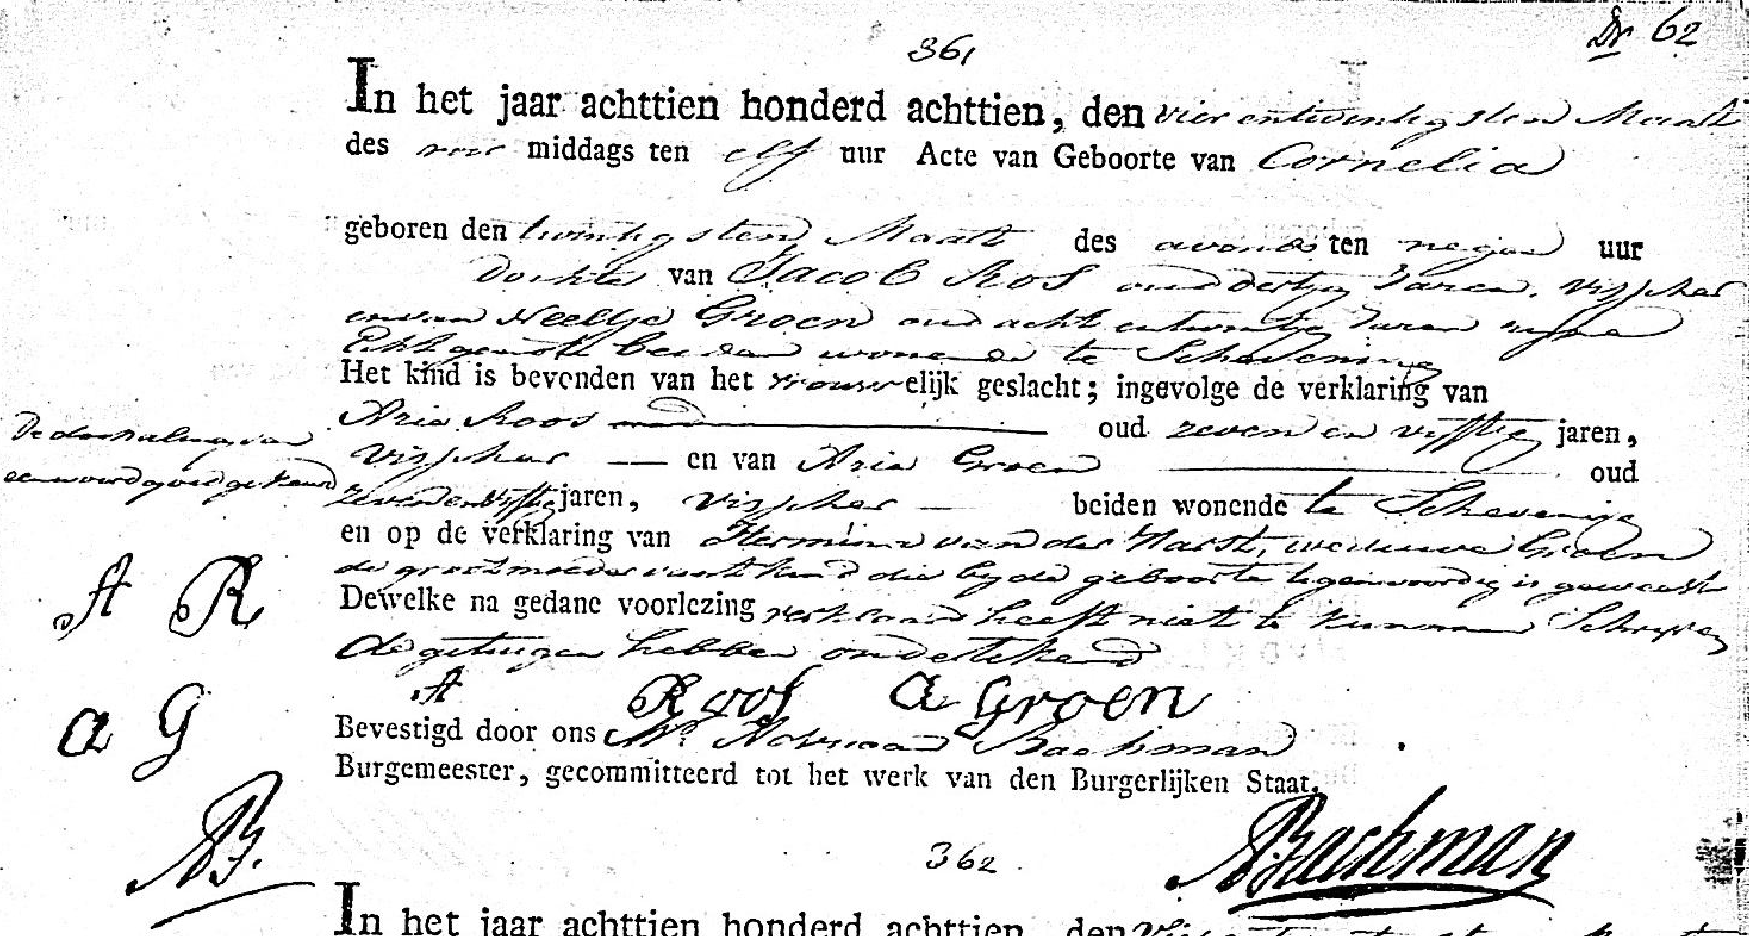 No 62
361
In het jaar achttien honderd achttien, den vier entwintigsten Maart
des voor middags ten elf uur Acte van Geboorte van Cornelia
geboren den twintigsten Maart des avonds ten negen uur
Dochter van Jacob Ros oud dertig Jaren, visscher
en van Neeltje Groen oud acht entwintig Jaren zyne
Echtgenoote beiden wonende te Schevening
Het kind is bevonden van het vrouwelijk geslacht; ingevolge de verklaring van
Arie Roos oud zeven en vyfftig jaren,
visscher en van Arie Groen oud
zeven en vyfftig jaren, visscher beiden wonende te Schevening
en op de verklaring van Hermina van der Harst, weduwe Groen
de grootmoeder van het kind die by de geboorte tegenwoordig is geweest
Dewelke na gedane voorlezing verklaard heeft niet te kunnen Schryven
de getuigen hebben ondertekend
De doorhaling van
een woord goedgekeurd
A R
a G
A Roos a Groen
Bevestigd door ons Mr Adriaan Bachman
Burgemeester, gecommitteerd tot het werk van den Burgerlijken Staat.
AB.
ABachman
362
In het jaar achttien honderd achttien, den